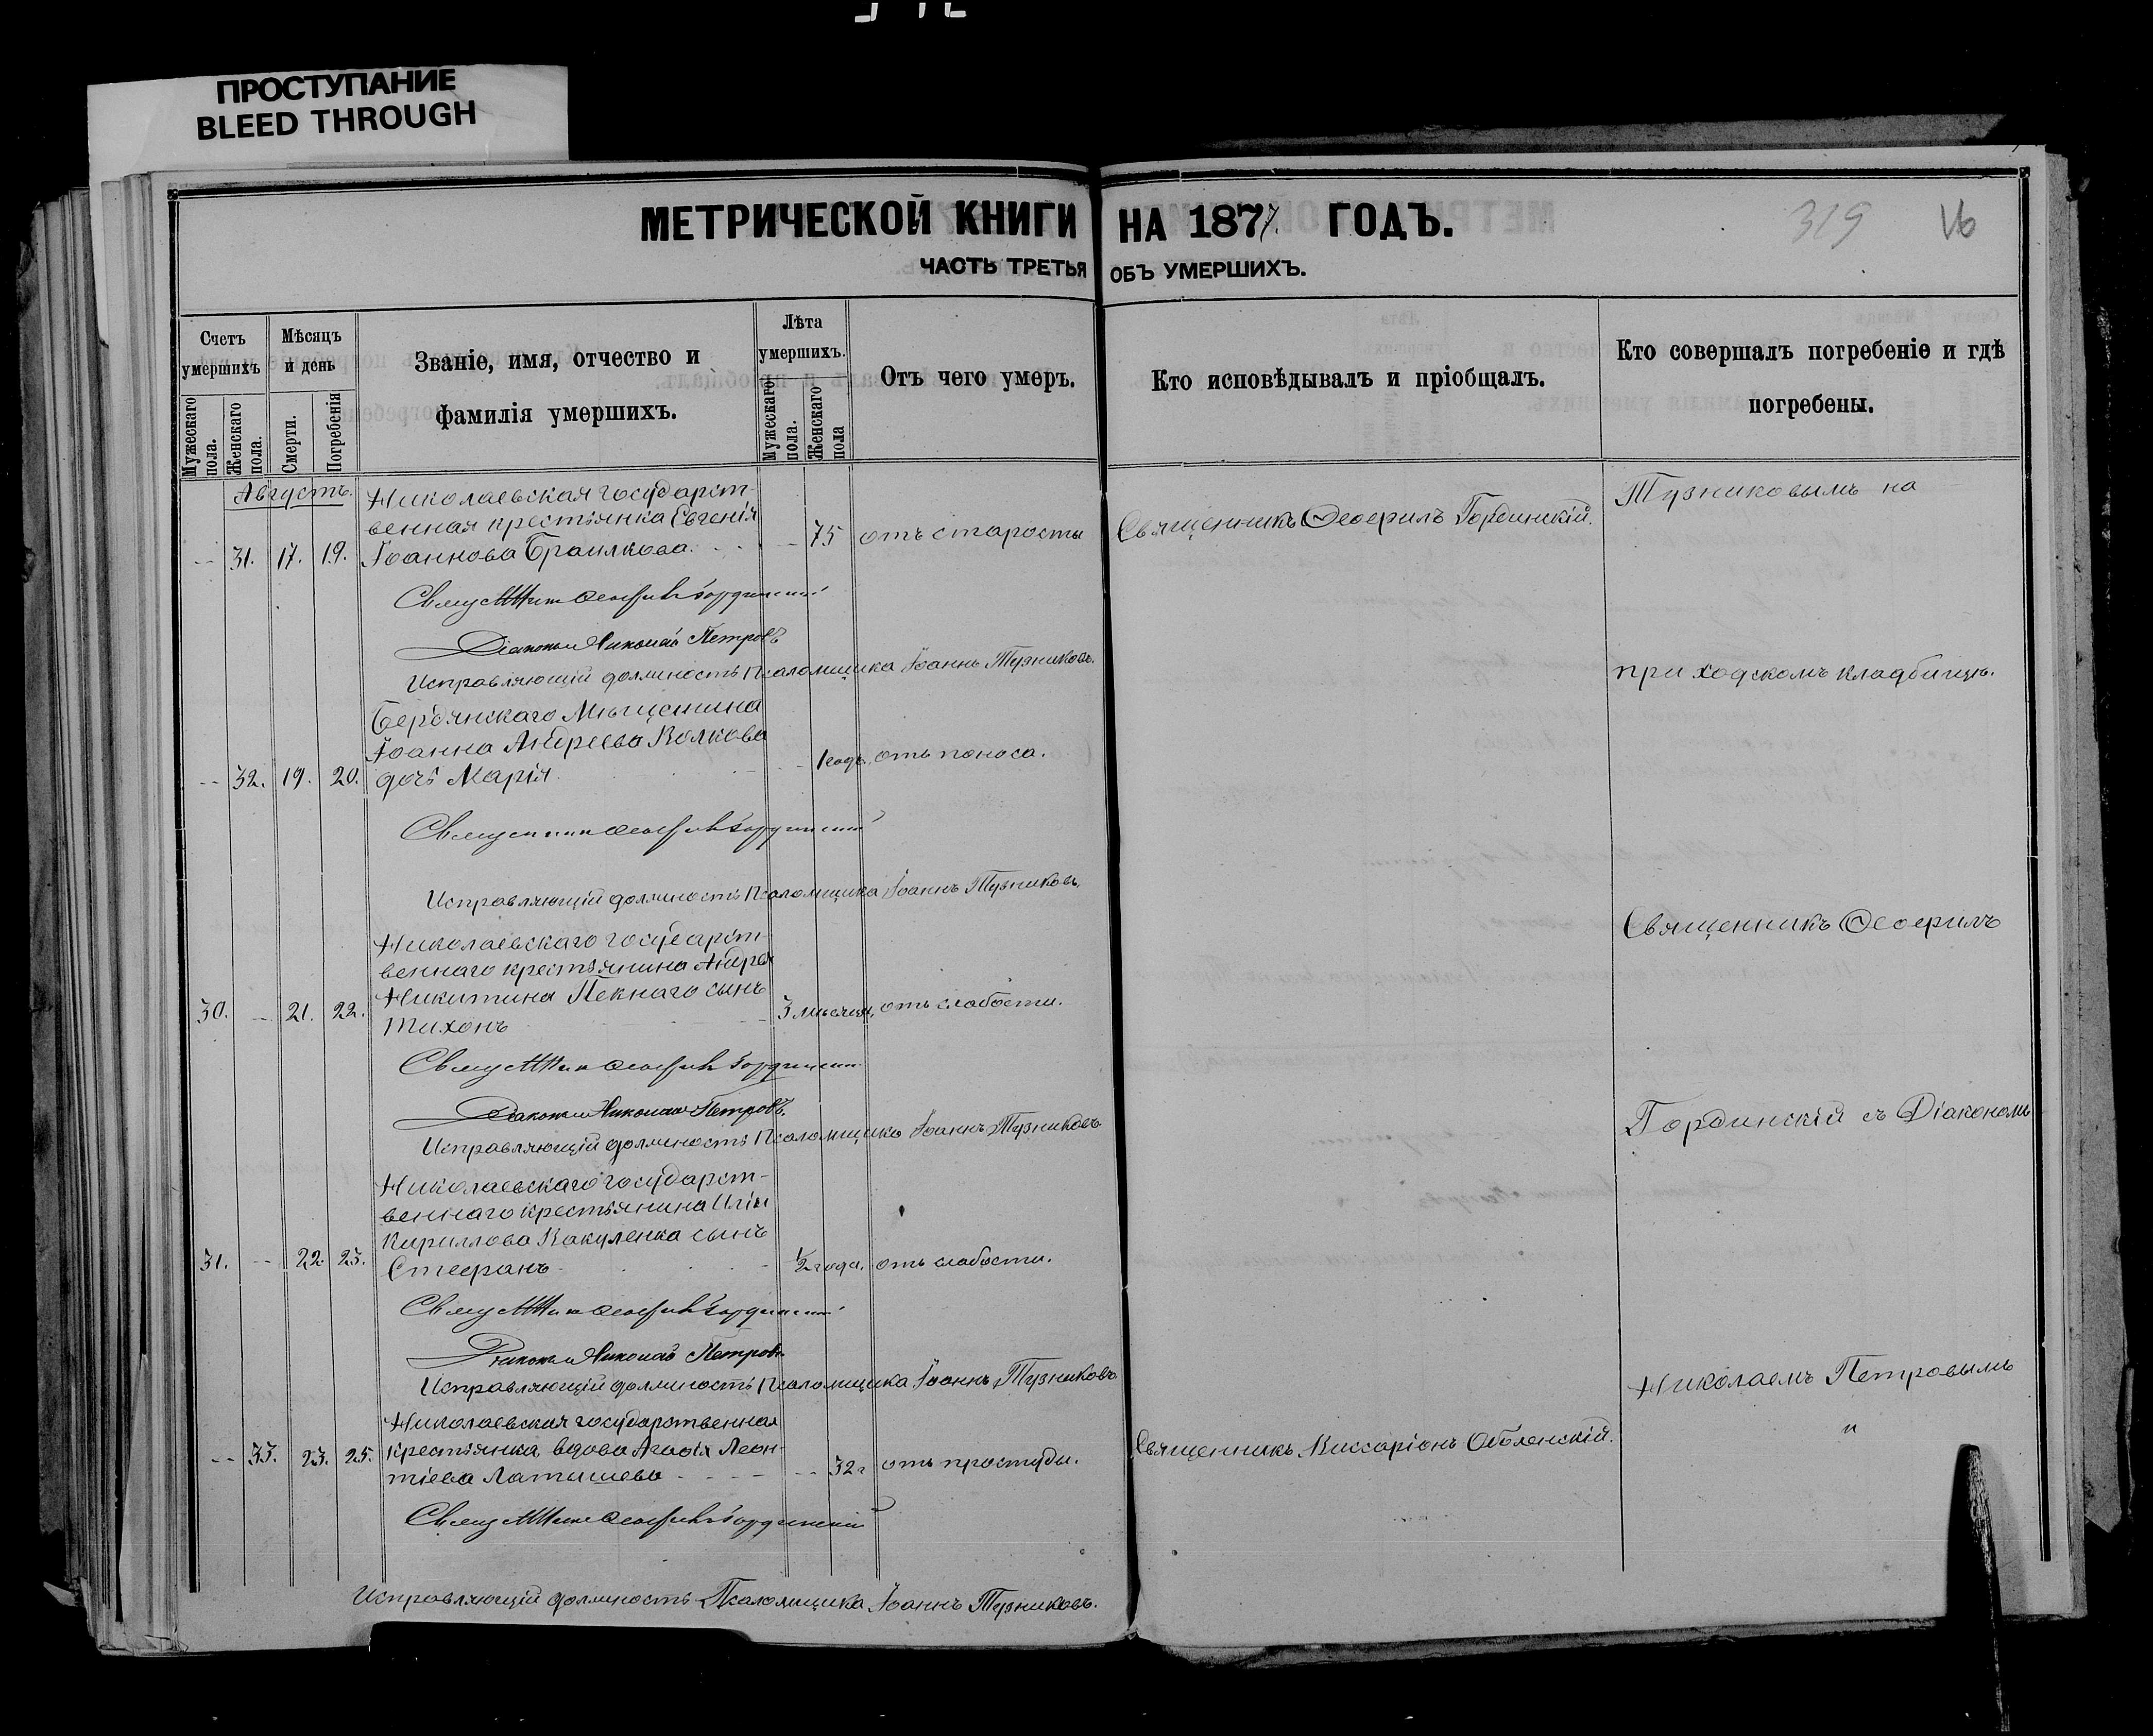 ПРОСТУПАНИЕ
BLEED THROUGH
МЕТРИЧЕСКОЙ КНИГИ НА 1877 ГОДЪ.
319
ЧАСТЬ ТРЕТЬЯ ОБЪ УМЕРШИХЪ.
Счетъ умершихъ
Мужескаго пола.
Женскаго пола.
Мѣсяцъ и день
Смерти.
Погребенія
Званіе, имя, отчество и
фамилія умершихъ.
Лѣта умершихъ.
Мужескаго пола.
Женскаго пола
Отъ чего умеръ.
Кто исповѣдывалъ и пріобщалъ.
Кто совершалъ погребеніе и гдѣ
погребены.
Августъ.
Николаевская государст-
венная крестьянка Евгенія
31. 17. 19. Іоаннова Браилкова. 75 отъ старости Священникъ Ѳеофилъ Гординскій.
Тузниковымъ на
Священникъ Ѳеофилъ Гординскій
Діаконъ Николай Петровъ
Исправляющій должность Псаломщика Іоаннъ Тузниковъ.
приходскомъ кладбищѣ.
Бердянскаго Мѣщанина
Іоанна Андреева Волкова
32. 19. 20. дочь Марія 1 годъ. отъ поноса.
Священникъ Ѳеофилъ Гординскій
Исправляющій должность Псаломщика Іоаннъ Тузниковъ.
Священникъ Ѳеофилъ
Николаевскаго государст-
веннаго крестьянина Андрея
Никитина Пекнаго сынъ
30. 21. 22. Тихонъ 3 мѣсяца, отъ слабости.
Священникъ Ѳеофилъ Гординскій
Діаконъ Николай Петровъ.
Исправляющій должность Псаломщика Іоаннъ Тузниковъ
Гординскій съ Діакономъ
Николаевскаго государст-
веннаго крестьянина Иліи
Кириллова Вакуленка сынъ
31. 22 23. Стефанъ 1/2 года. отъ слабости.
Священникъ Ѳеофилъ Гординскій
Діаконъ Николай Петровъ
Исправляющій должность Псаломщика Іоаннъ Тузниковъ
Николаемъ Петровымъ
Николаевская государственная
33. 23. 25. крестьянка вдова Агафія Леон-
тіева Латышева 32 г отъ простуды. Священникъ Виссаріонъ Оболенскій. "
Священникъ Ѳеофилъ Гординскій
Исправляющій должность Псаломщика Іоаннъ Тузниковъ.